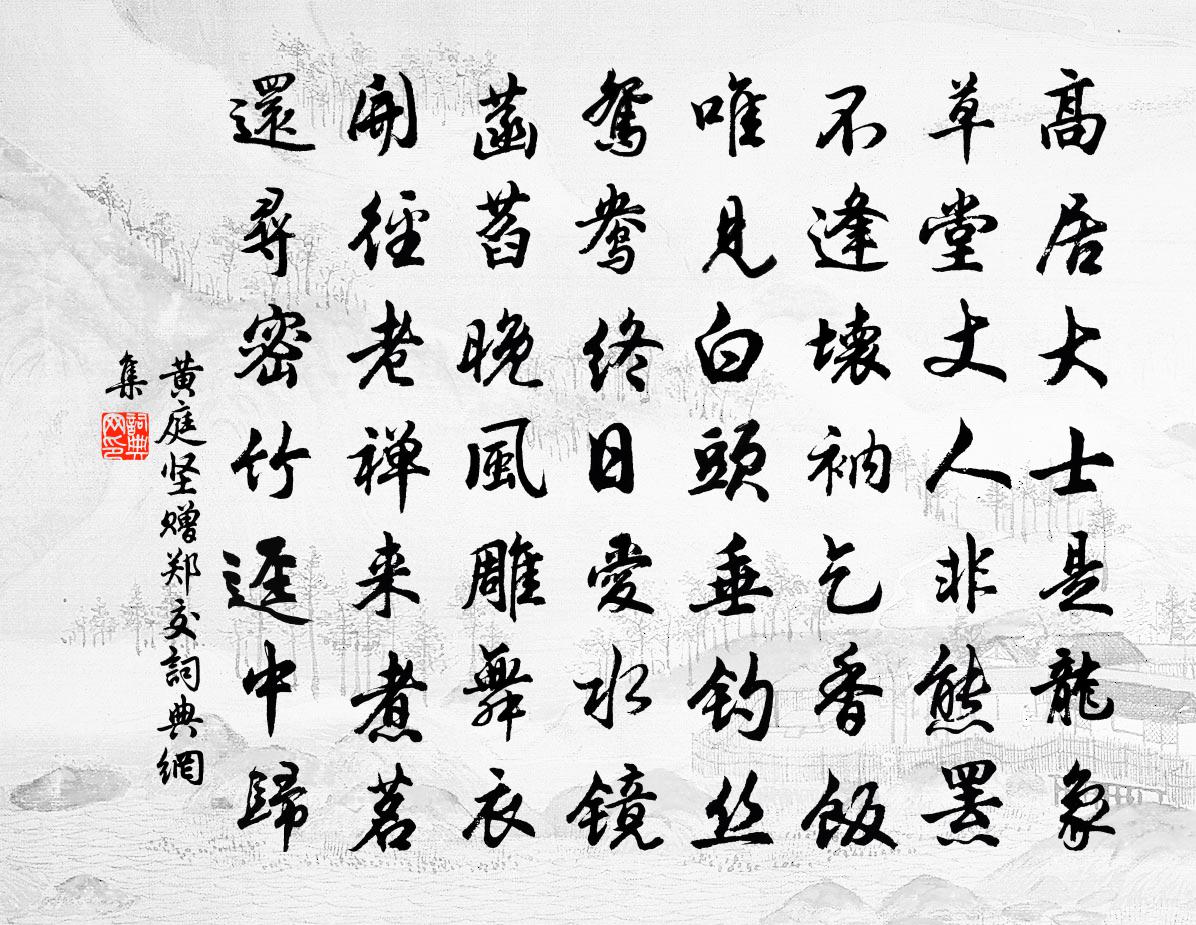 高居大士是龍象
草堂丈人非熊羆
不逢壞衲乞香飯
唯見白頭垂釣丝
鴛鴦終日愛水镜
菡萏晚風雕舞衣
開徑老禅来煮茗
還尋密竹逕中歸
黄庭坚赠郑交詞典網
集
詞典网印